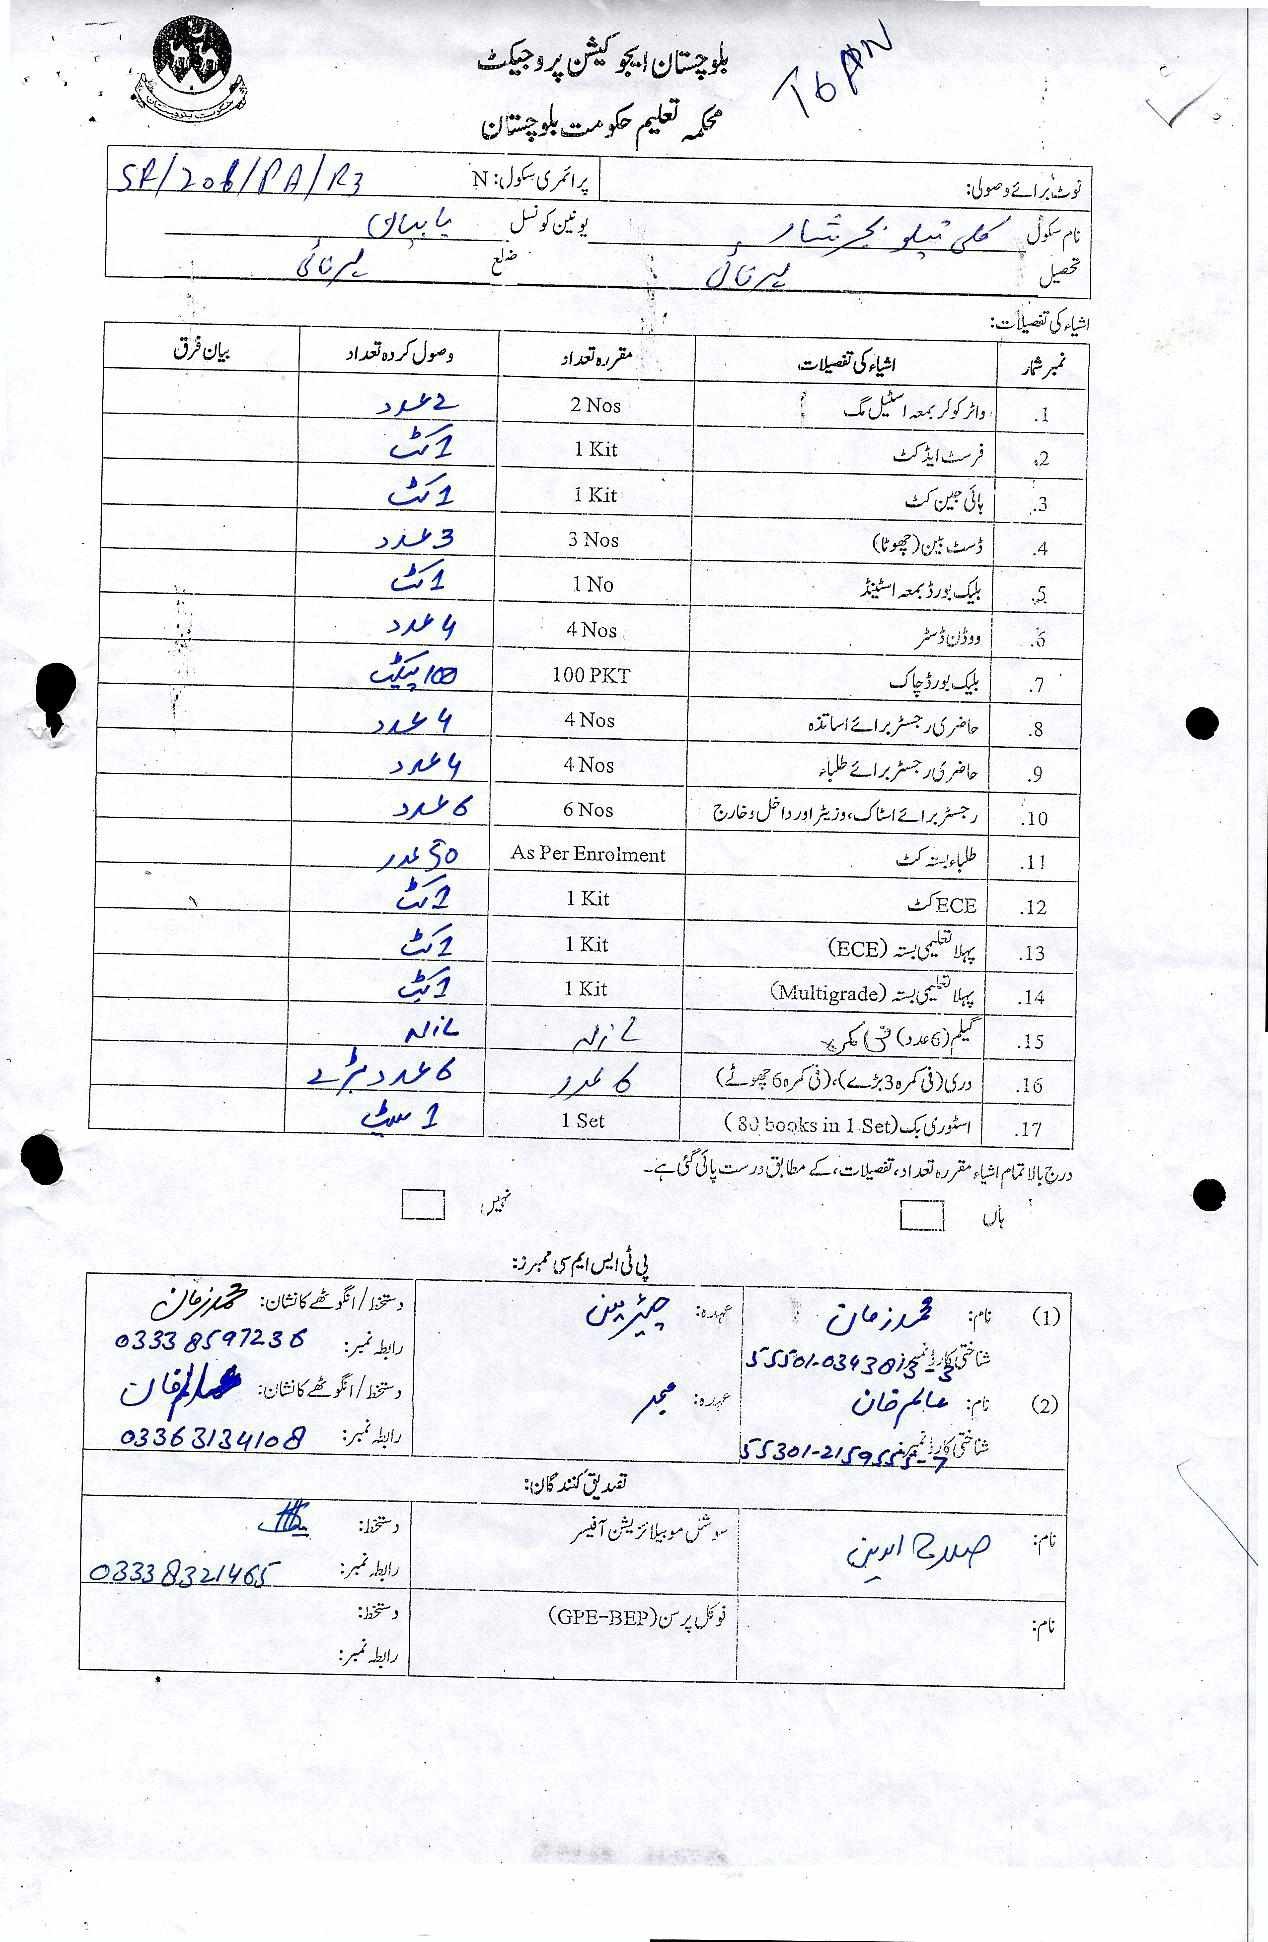 بلوچستان ایجوکیشن پروجیکٹ
محکمہ تعلیم حکومت بلوچستان
نوٹ برائے وصولی: پرائمری سکول: N
نام سکول کلی یونین کونسل
تحصیل ہرنائی ضلع ہرنائی
اشیاء کی تفصیلات:
نمبر شمار اشیاء کی تفصیلات مقررہ تعداد وصول کردہ تعداد بیان فرق
1. واٹر کولر بمعہ اسٹیل مگ 2 Nos 2 عدد
2. فرسٹ ایڈ کٹ 1 Kit 1 کٹ
3. ہائی جین کٹ 1 Kit 1 کٹ
4. ڈسٹ بین (چھوٹا) 3 Nos 3 عدد
5. بلیک بورڈ بمعہ اسٹینڈ 1 No 1 کٹ
6. ووڈن ڈسٹر 4 Nos 4 عدد
7. بلیک بورڈ چاک 100 PKT 100 پیکٹ
8. حاضری رجسٹر برائے اساتذہ 4 Nos 4 عدد
9. حاضری رجسٹر برائے طلباء 4 Nos 4 عدد
10. رجسٹر برائے اسٹاک، وزیٹر اور داخل و خارج 6 Nos 6 عدد
11. طلباء بستہ کٹ As Per Enrolment 50 عدد
12. ECE کٹ 1 Kit 1 کٹ
13. پہلا تعلیمی بستہ (ECE) 1 Kit 1 کٹ
14. پہلا تعلیمی بستہ (Multigrade) 1 Kit 1 کٹ
15. گیلم (6 عدد) فی کمرہ
16. دری (فی کمرہ 3 بڑے)، (فی کمرہ 6 چھوٹے) 6 عدد 6 عدد بڑے
17. اسٹوری بک (80 books in 1 Set) 1 Set 1 سیٹ
درج بالا تمام اشیاء مقررہ تعداد، تفصیلات، کے مطابق درست پائی گئی ہے۔
ہاں نہیں
پی ٹی ایس ایم سی ممبرز:
(1) نام: محمد زمان عہدہ: چیئرمین دستخط/انگوٹھے کا نشان: محمد زمان
شناختی کارڈ نمبر: رابطہ نمبر: 03338597236
(2) نام: عالم خان عہدہ: ممبر دستخط/انگوٹھے کا نشان:
شناختی کارڈ نمبر: 55301-2159555-7 رابطہ نمبر: 03363134108
تصدیق کنندگان:
نام: صلاح الدین سوشل موبیلائزیشن آفیسر دستخط:
رابطہ نمبر: 03338321465
نام: فوکل پرسن (GPE-BEP) دستخط:
رابطہ نمبر: